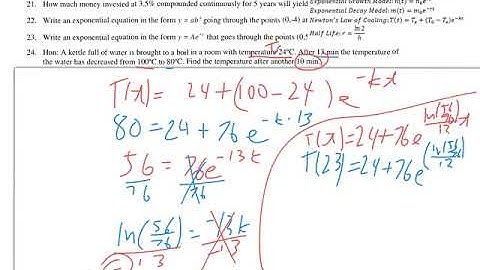 21. How much money invested at 3.5% compounded continuously for 5 years will yield
Exponential Growth Model: m(t) = n₀e
22. Write an exponential equation in the form y = abˣ going through the points (0,-4) at
Newton's Law of Cooling: T(t) = Tₑ + (T₀ − Tₑ)e⁻ᵏᵗ
Exponential Decay Model: m(t) = m₀e⁻ʳᵗ
23. Write an exponential equation in the form y = Ae⁻ʳˣ that goes through the points (0,5
Half Life: r = ln 2 / h
24. Hon: A kettle full of water is brought to a boil in a room with temperature 24°C. After 13 min the temperature of
the water has decreased from 100°C to 80°C. Find the temperature after another 10 min.
T(x) = 24 + (100 - 24) e^-kx
80 = 24 + 76e^-k·13
56/76 = 76e^-13k/76
ln(56/76) = -13k/-13
13
T(x) = 24 + 76e
T(23) = 24 + 76e